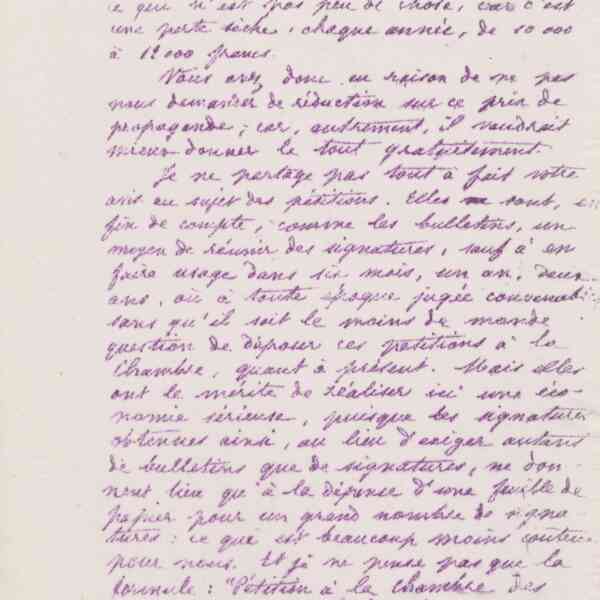 ce qui n'est pas peu de chose, car c'est
une perte sèche, chaque année, de 10 000
à 12 000 francs.
Vous avez donc eu raison de ne pas
nous demander de réduction sur ce prix de
propagande; car, autrement, il vaudrait
mieux donner le tout gratuitement.
Je ne partage pas tout à fait votre
avis au sujet des pétitions. Elles ne sont, en
fin de compte, comme les bulletins, un
moyen de réunir des signatures, sauf à en
faire usage dans six mois, un an, deux
ans, où à toute époque jugée convenab
sans qu'il soit le moins du monde
question de déposer ces pétitions à la
Chambre, quant à présent. Mais elles
ont le mérite de réaliser ici une éco-
nomie sérieuse, puisque les signatures
obtenues ainsi, au lieu d'exiger autant
de bulletins que de signatures, ne don-
nent lieu qu'à la dépense d'une feuille de
papier pour un grand nombre de signa-
tures: ce que est beaucoup moins coûteux
pour nous. Et je ne pense pas que la
formule: "Pétition à la Chambre des